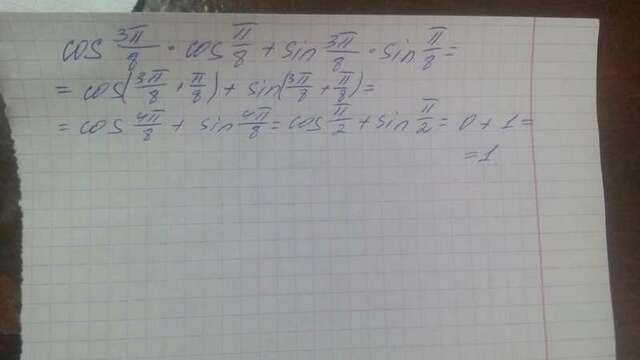 cos 3π/8 · cos π/8 + sin 3π/8 · sin π/8 =
= cos(3π/8 + π/8) + sin(3π/8 + π/8) =
= cos 4π/8 + sin 4π/8 = cos π/2 + sin π/2 = 0 + 1 =
= 1